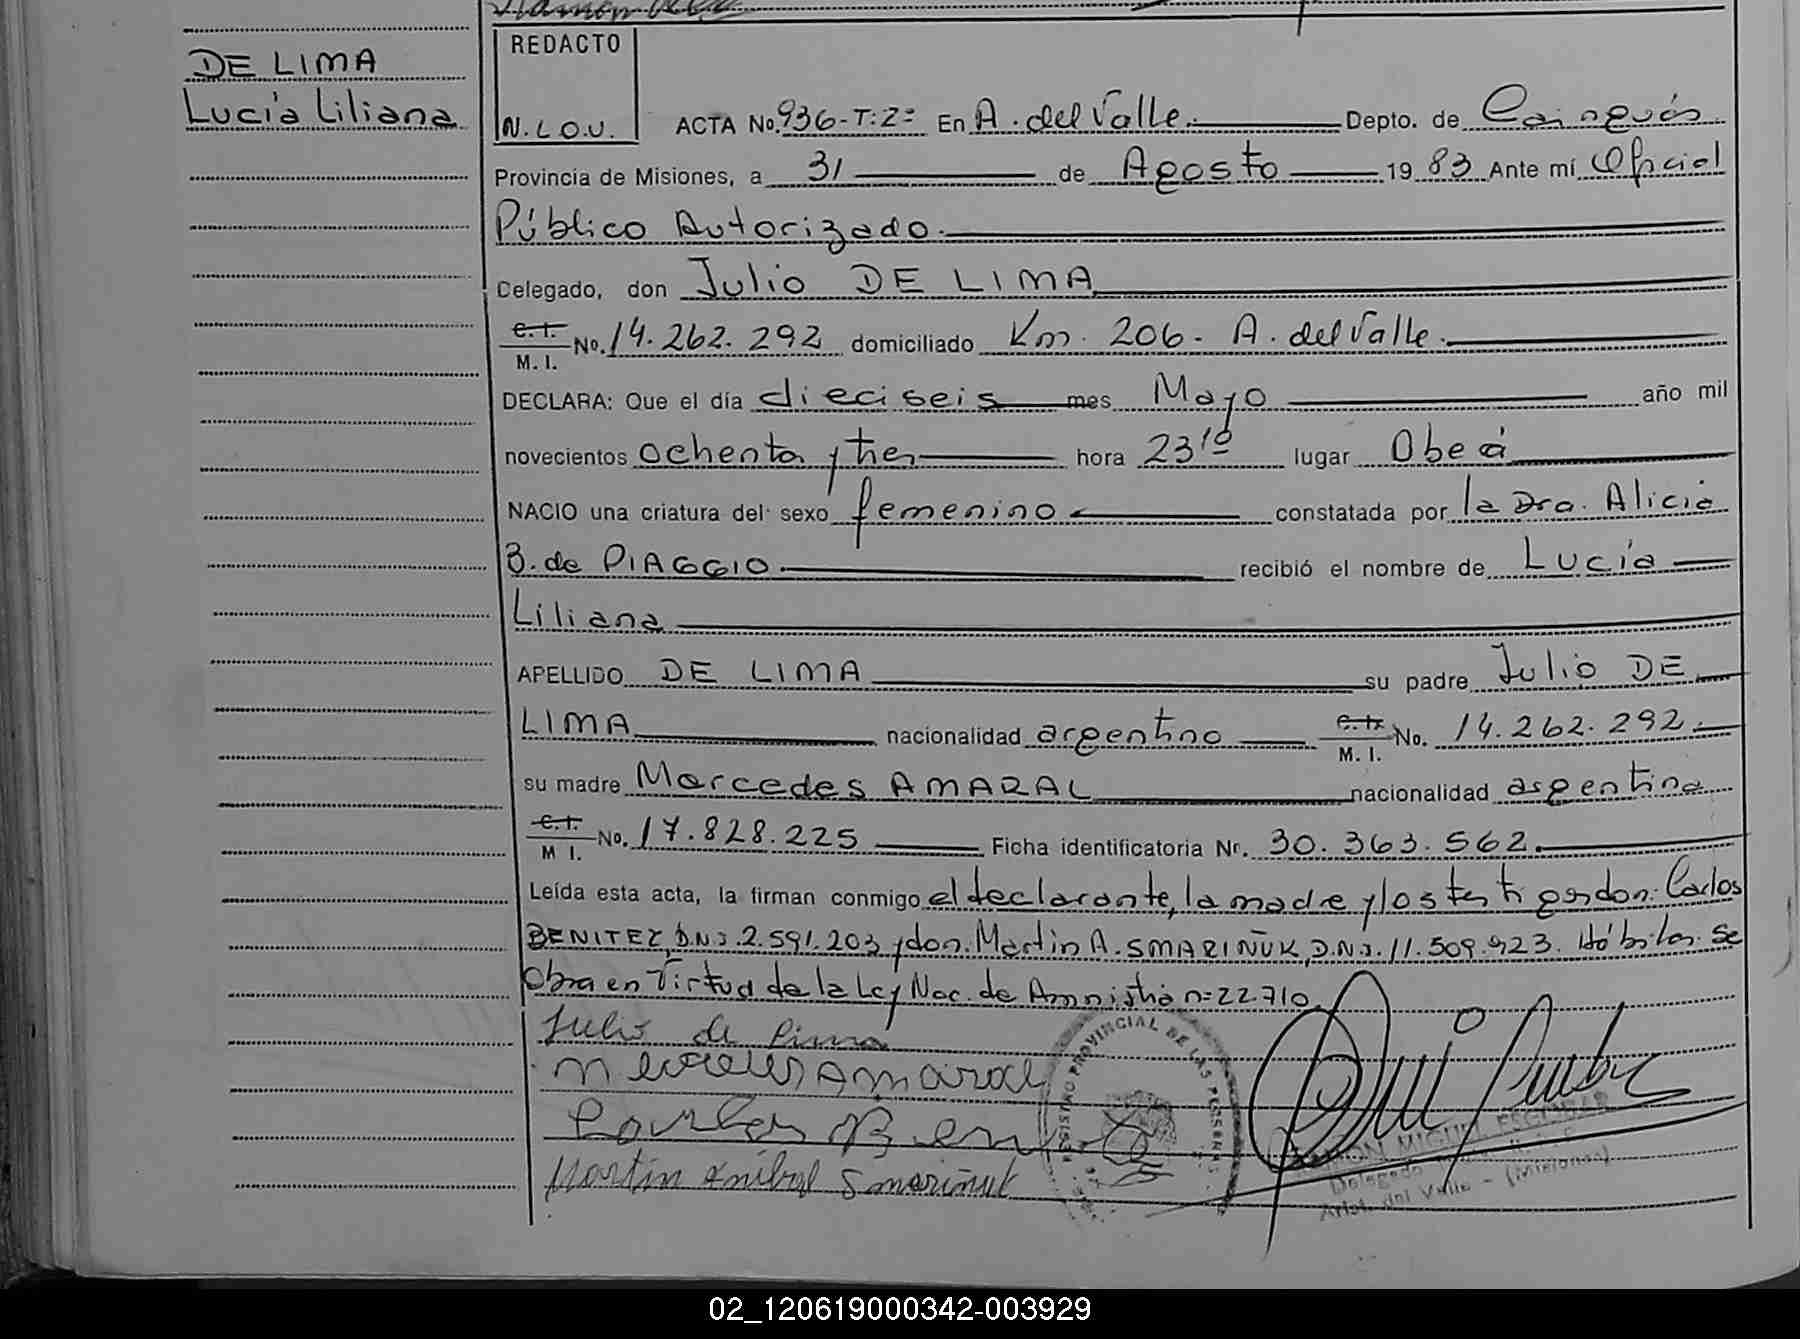 DE LIMA
Lucía Liliana
REDACTO
N.L.O.U.
ACTA No. 936-T:2= En A. del Valle. Depto. de Cainguás
Provincia de Misiones, a 31 de Agosto 19 83 Ante mí Oficial
Público Autorizado.
Delegado, don Julio DE LIMA
C.I. M. I. No. 14.262.292 domiciliado Km. 206- A. del Valle.
DECLARA: Que el día dieciseis mes Mayo año mil
novecientos ochenta y tres hora 23,10 lugar Oberá
NACIO una criatura del sexo femenino constatada por la Dra. Alicia
B. de PIAGGIO recibió el nombre de Lucía
Liliana
APELLIDO DE LIMA su padre Julio DE
LIMA nacionalidad argentino C.I. M. I. No. 14.262.292.
su madre Mercedes AMARAL nacionalidad argentina
C.I. M I. No. 17.828.225 Ficha identificatoria Nr. 30.363.562.
Leída esta acta, la firman conmigo el declarante, la madre y los testigos don: Carlos
BENITEZ, D.N.I. 2.591.203 y don. Martin A. SMARIÑUK, D.N.I. 11.509.923. Hábiles. Se
Obra en Virtud de la Ley Nac. de Amnistía n= 22.710
Julio de Lima
Mercedes Amaral
Carlos Benitez
Martín Aníbal Smariñuk
REGISTRO PROVINCIAL DE LAS PERSONAS
RAMON MIGUEL ESCOBAR
Delegado
Arist. del Valle - (Misiones)
02_120619000342-003929